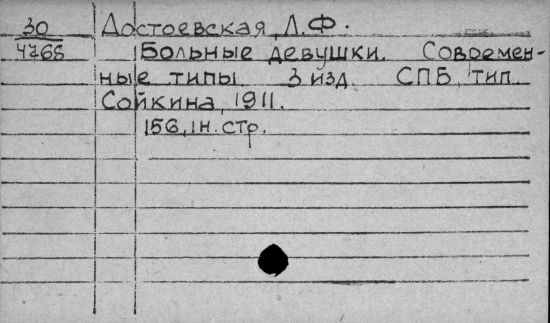 30 Достоевская, Л.Ф.
4768 Больные девушки. Современ-
ные типы 3 изд. СПБ, тип.
Сойкина, 1911.
156, 1н. стр.